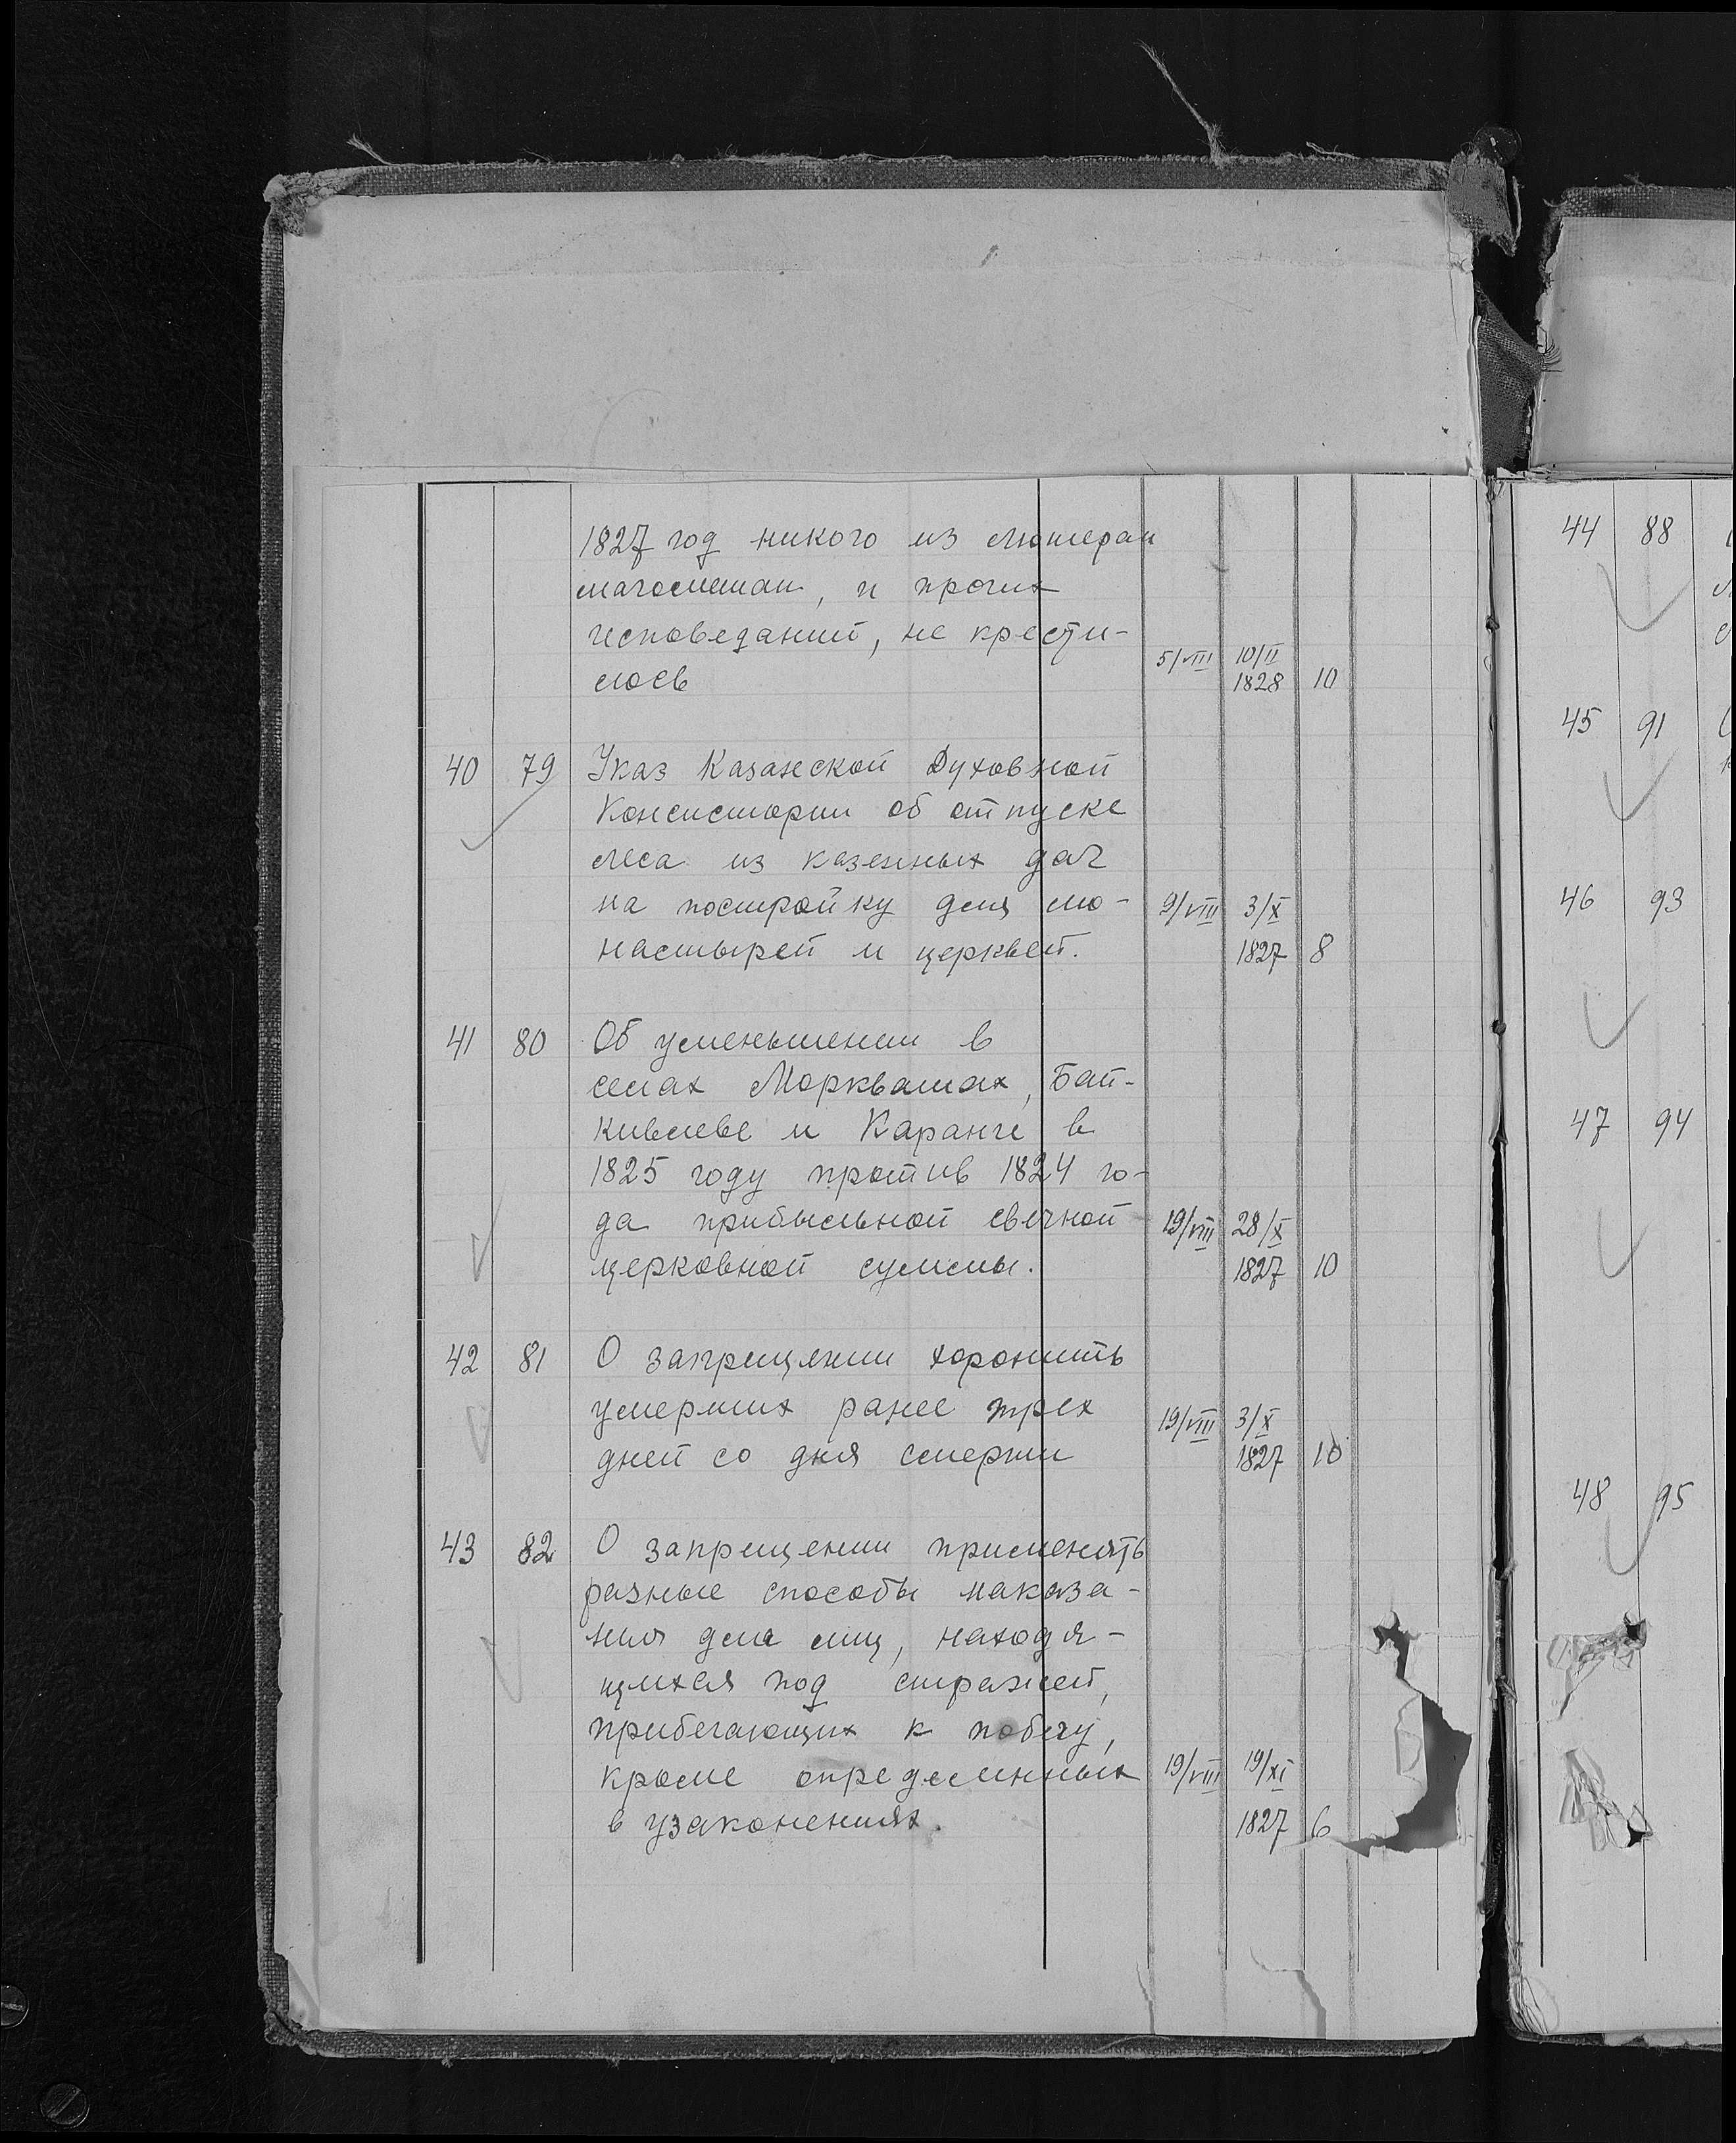 1827 год никого из лютеран
магометан, и прочих
исповеданий, не крести-
лось
5/VIII 10/II
1828 10
40 79 Указ Казанской Духовной
Консистории об отпуске
леса из казенных дач
на постройку для мо- 9/VIII 3/X
настырей и церквей. 1827 8
41 80 Об уменьшении в
селах Моркваших, Бай-
кивлеве и Каранге в
1825 году против 1824 го-
да прибыльной свечной 19/VIII 28/X
церковной суммы. 1827 10
42 81 О запрещении хоронить
умерших ранее трех 19/VIII 3/X
дней со дня смерти 1827 10
43 82 О запрещении применять
разные способы наказа-
ния для лиц, находя-
щихся под стражей,
прибегающих к побегу,
кроме определенных 19/VIII 19/XI
в узаконениях. 1827 6
44 88
45 91
46 93
47 94
48 95